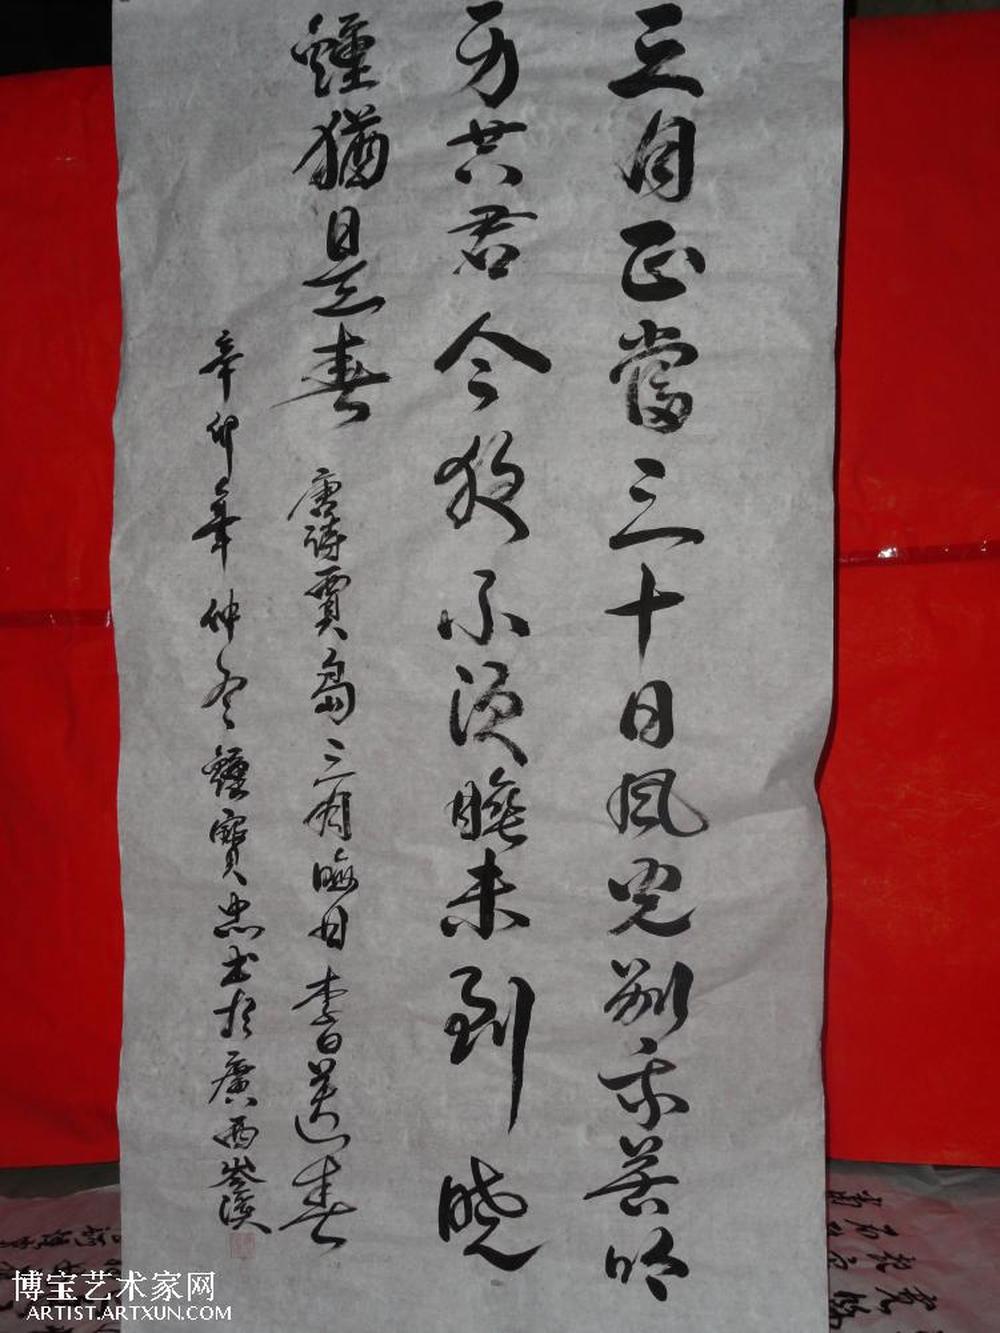 三月正當三十日風光別我苦吟
身共君今夜不須睡未到曉
鐘猶是春
唐詩賈島三月晦日李白送春
辛卯年仲冬鐘寶忠书於廣西岑溪
博宝艺术家网
ARTIST.ARTXUN.COM